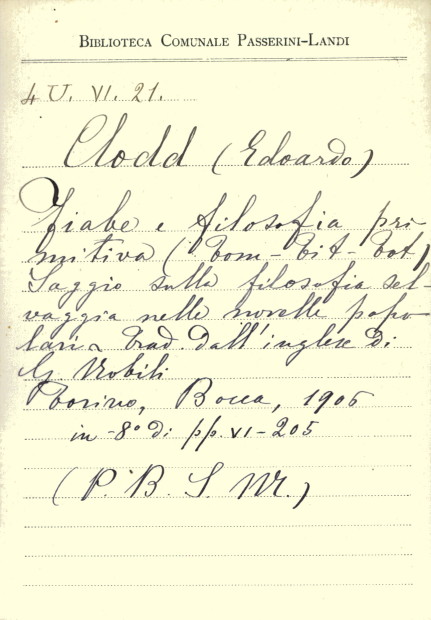 BIBLIOTECA COMUNALE PASSERINI-LANDI
4 U. VI. 21.
Clodd (Edoardo)
Fiabe e filosofia pri-
mitiva (Tom-tit-tot)
Saggio sulla filosofia sel-
vaggia nelle novelle popo-
lari Trad. dall'inglese di
G. Nobili
Torino, Bocca, 1906
in-8° di pp. VI-205
(P. B. S. M.)